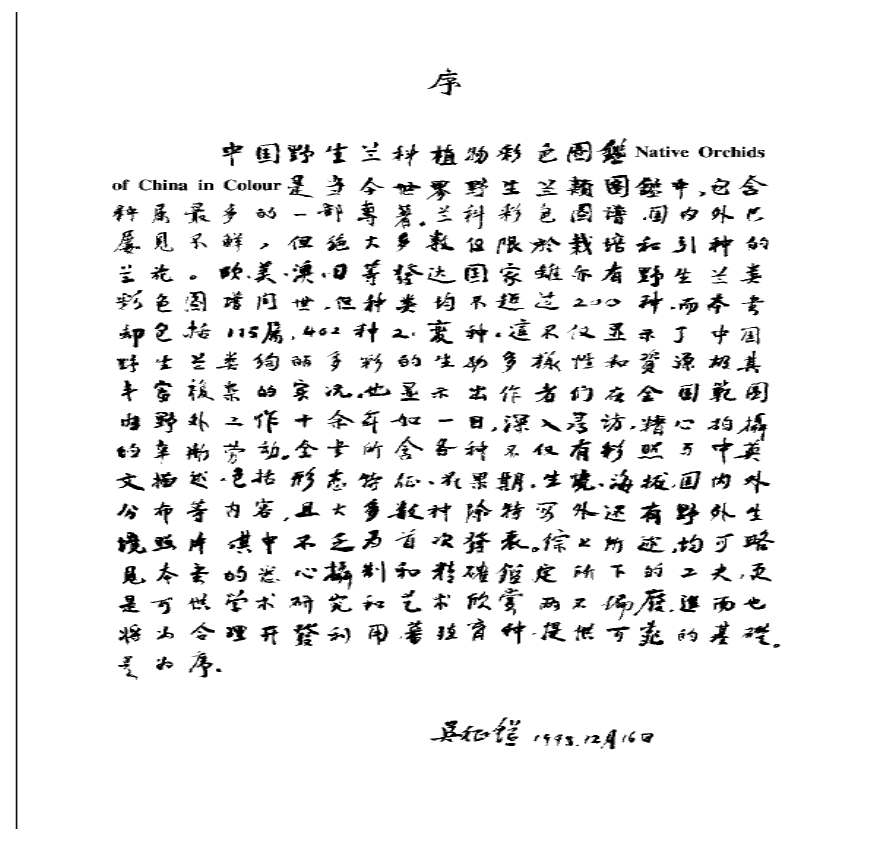 序
中国野生兰科植物彩色图鑑 Native Orchids
of China in Colour 是当今世界野生兰類图鑑中,包含
种属最多的一部專著。兰科彩色图谱,国内外已
屡見不鲜,但绝大多数仅限於栽培和引种的
兰花。欧、美、澳、日等發达国家雖亦有野生兰类
彩色图谱问世,但种类均不超过200种,而本书
却包括115属,402种2变种。這不仅显示了中国
野生兰类绚丽多彩的生物多樣性和資源极其
丰富複杂的实况,也显示出作者们在全国範围
内野外工作十余年如一日,深入寻访,精心拍攝
的辛勤劳动。全书所含各种不仅有彩照与中英
文描述,包括形态特征、花果期、生境、海拔、国内外
分布等内容,且大多数种除特写外还有野外生
境照片,其中不乏为首次發表。综上所述,均可略
見本书的悉心攝制和精確鑑定所下的工夫,更
是可供学术研究和艺术欣赏两不偏廢,進而也
将为合理开發利用、蕃殖育种提供可靠的基礎。
是为序。
吴征鎰 1998.12月16日